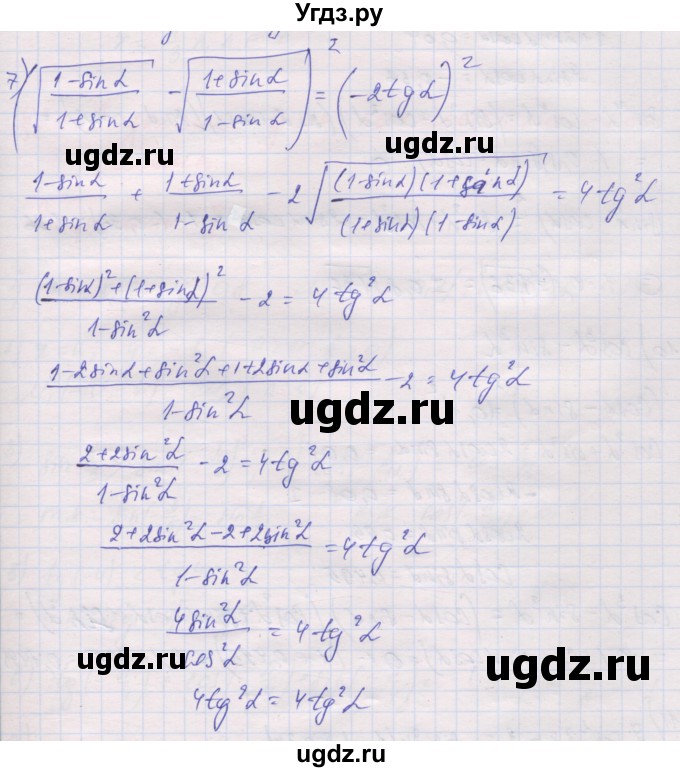 Угдз.ру
7) (√((1-sinα)/(1+sinα)) - √((1+sinα)/(1-sinα)))² = (-2tgα)²
ugdz.ru ugdz.ru
(1-sinα)/(1+sinα) + (1+sinα)/(1-sinα) - 2√((1-sinα)(1+sinα)/(1+sinα)(1-sinα)) = 4tg²α
((1-sinα)²+(1+sinα)²)/(1-sin²α) - 2 = 4tg²α
ugdz.ru
(1-2sinα+sin²α+1+2sinα+sin²α)/(1-sin²α) - 2 = 4tg²α
ugdz.ru
(2+2sin²α)/(1-sin²α) - 2 = 4tg²α
ugdz.ru
(2+2sin²α-2+2sin²α)/(1-sin²α) = 4tg²α
4sin²α/cos²α = 4tg²α
ugdz.ru ugdz.ru
4tg²α = 4tg²α
ugdz.ru